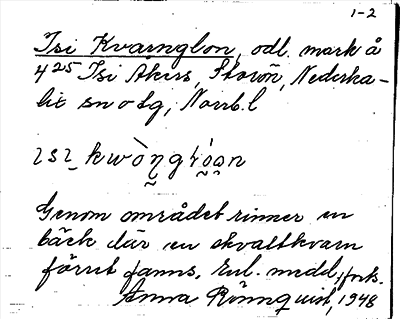 1-2
Isi Kvarnglon, odl. mark å
4²⁵ Isi Åkers, Storön, Nederka-
lix sn o tg, Norrb.l
ɩsɩ kwòŋgɫóan
Genom området rinner en
bäck där en skvaltkvarn
förut fanns, enl. medd. förk.
Anna Rönnquist, 1948